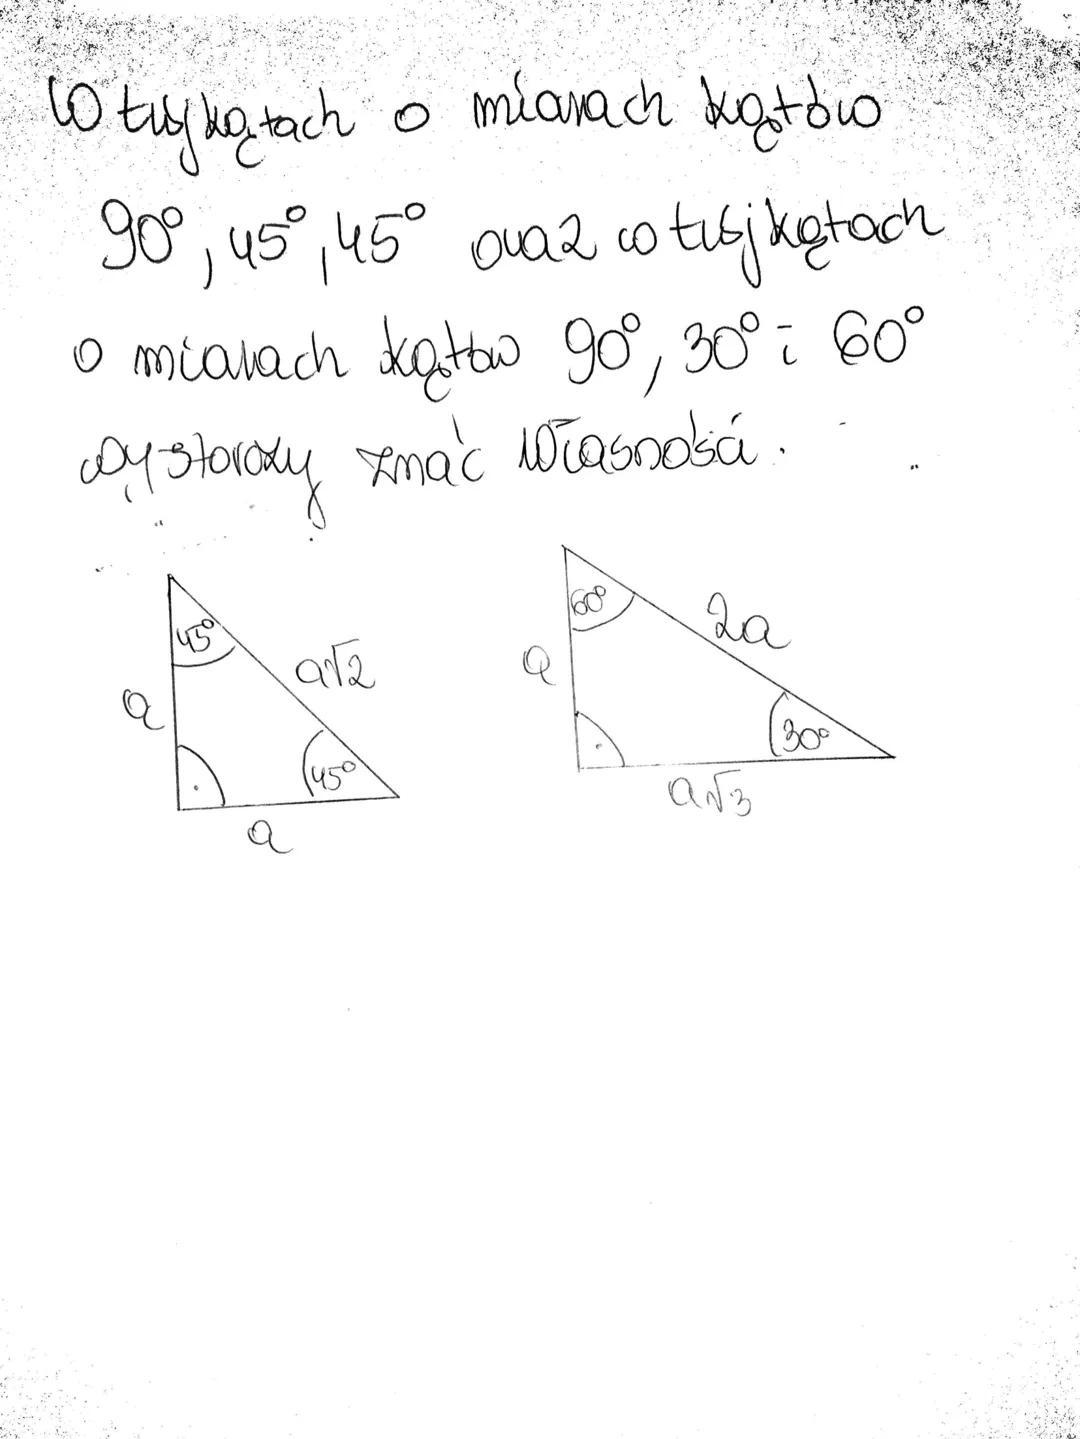 W trójkątach o miarach kątów
90°, 45°, 45° oraz w trójkątach
o miarach kątów 90°, 30° i 60°
wystarczy znać własności.
60°
2a
45°
a√2
a
a
30°
45°
a√3
a